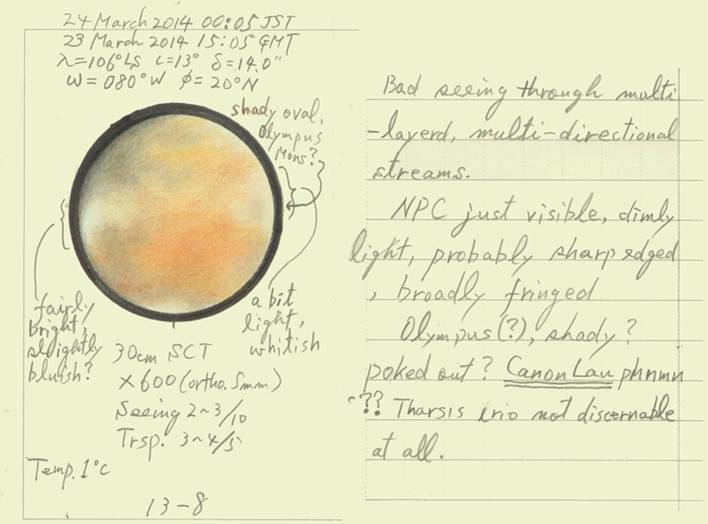 24 March 2014 00:05 JST
23 March 2014 15:05 GMT
λ=106°Ls ι=13° δ=14.0"
ω=080°W φ=20°N
shady oval,
Olympus
Mons?
fairly
bright,
slightly
bluish?
a bit
light,
whitish
30cm SCT
×600 (ortho. 5mm)
Seeing 2~3/10
Trsp. 3~4/5
Temp. 1°C
13-8
Bad seeing through multi
-layerd, multi-directional
streams.
NPC just visible, dimly
light, probably sharp edged
, broadly fringed
Olympus(?), shady?
poked out? Canon Lau phnmn
?? Tharsis trio not discernable
at all.